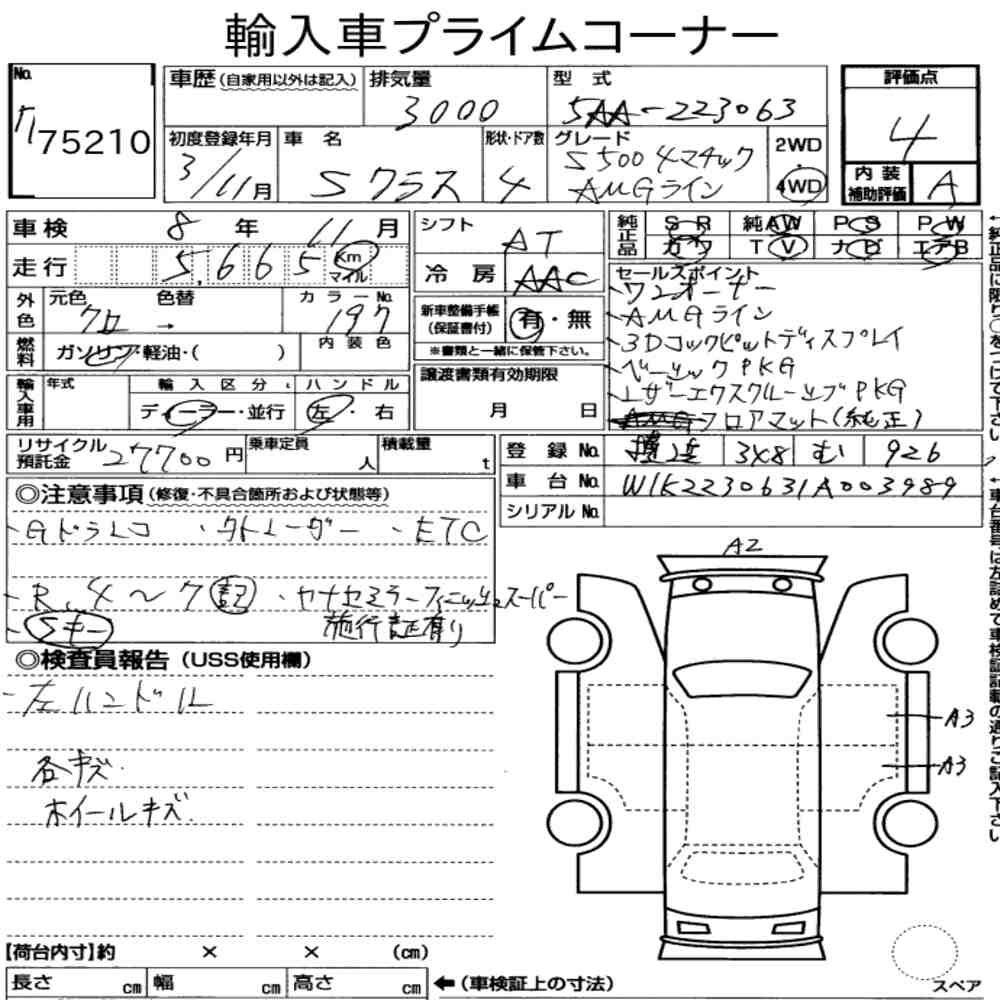 輸入車プライムコーナー
No.
75210
車歴 (自家用以外は記入)
排気量
3000
型式
5AA-223063
評価点
4
内装補助評価
A
初度登録年月
3/11月
車名
Sクラス
形状・ドア数
4
グレード
S500 4マチック
AMGライン
2WD
4WD
車検 8年 11月
走行 5,665 Km マイル
シフト
AT
冷房
AAC
純正品
SR 純AW PS PW
カワ TV ナビ エアB
外色
元色 色替 カラーNo.
クロ → 197
燃料
ガソリン・軽油・( )
内装色
新車整備手帳
(保証書付)
有・無
※書類と一緒に保管下さい。
セールスポイント
・ワンオーナー
・AMGライン
・3Dコックピットディスプレイ
・ベーシックPKG
・レザーエクスクルーシブPKG
フロアマット(純正)
輸入車用
年式
輸入区分 ハンドル
ディーラー・並行 左・右
譲渡書類有効期限
月 日
リサイクル預託金 27700円
乗車定員 人
積載量 t
登録No. 3X8 む 926
車台No. W1K2230631A003989
シリアルNo.
◎注意事項 (修復・不具合箇所および状態等)
・Gドラレコ ・タトレーダー ・ETC
・R.4〜7記 ・ヤナセミラーフィニッシュスーパー
施行証有り
・Sキー
◎検査員報告 (USS使用欄)
・左ハンドル
各キズ.
ホイールキズ.
A2
A3
A3
スペア
【荷台内寸】約 × × (cm)
長さ cm 幅 cm 高さ cm
←(車検証上の寸法)
↑純正品に限り○をつけて下さい。
↑車台番号は左詰めで車検証記載の通りご記入下さい